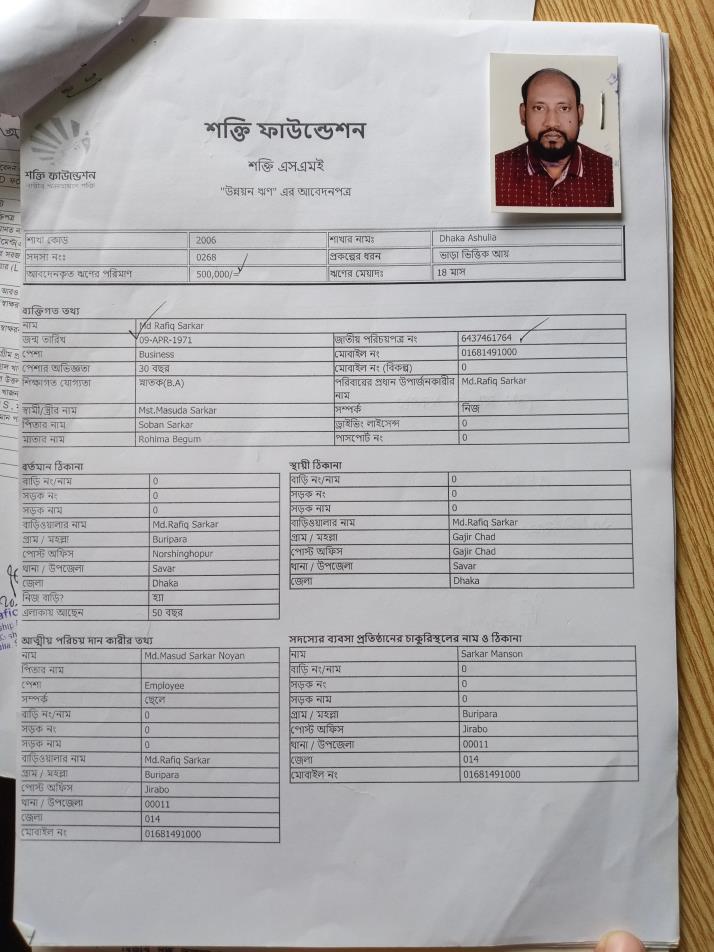 শক্তি ফাউন্ডেশন
শক্তি এসএমই
"উন্নয়ন ঋণ" এর আবেদনপত্র
শক্তি ফাউন্ডেশন
শাখা কোড 2006 শাখার নামঃ Dhaka Ashulia
সদস্য নংঃ 0268 প্রকল্পের ধরন ভাড়া ভিত্তিক আয়
আবেদনকৃত ঋণের পরিমাণ 500,000/= ঋণের মেয়াদঃ 18 মাস
ব্যক্তিগত তথ্য
নাম Md Rafiq Sarkar
জন্ম তারিখ 09-APR-1971 জাতীয় পরিচয়পত্র নং 6437461764
পেশা Business মোবাইল নং 01681491000
পেশার অভিজ্ঞতা 30 বছর মোবাইল নং (বিকল্প) 0
শিক্ষাগত যোগ্যতা স্নাতক(B.A) পরিবারের প্রধান উপার্জনকারীর Md.Rafiq Sarkar
নাম
স্বামী/স্ত্রীর নাম Mst.Masuda Sarkar সম্পর্ক নিজ
পিতার নাম Soban Sarkar ড্রাইভিং লাইসেন্স 0
মাতার নাম Rohima Begum পাসপোর্ট নং 0
বর্তমান ঠিকানা
বাড়ি নং/নাম 0
সড়ক নং 0
সড়ক নাম 0
বাড়িওয়ালার নাম Md.Rafiq Sarkar
গ্রাম / মহল্লা Buripara
পোস্ট অফিস Norshinghopur
থানা / উপজেলা Savar
জেলা Dhaka
নিজ বাড়ি? হ্যা
এলাকায় আছেন 50 বছর
স্থায়ী ঠিকানা
বাড়ি নং/নাম 0
সড়ক নং 0
সড়ক নাম 0
বাড়িওয়ালার নাম Md.Rafiq Sarkar
গ্রাম / মহল্লা Gajir Chad
পোস্ট অফিস Gajir Chad
থানা / উপজেলা Savar
জেলা Dhaka
আত্মীয় পরিচয় দান কারীর তথ্য
নাম Md.Masud Sarkar Noyan
পিতার নাম
পেশা Employee
সম্পর্ক ছেলে
বাড়ি নং/নাম 0
সড়ক নং 0
সড়ক নাম 0
বাড়িওয়ালার নাম Md.Rafiq Sarkar
গ্রাম / মহল্লা Buripara
পোস্ট অফিস Jirabo
থানা / উপজেলা 00011
জেলা 014
মোবাইল নং 01681491000
সদস্যের ব্যবসা প্রতিষ্ঠানের চাকুরিস্থলের নাম ও ঠিকানা
নাম Sarkar Manson
বাড়ি নং/নাম 0
সড়ক নং 0
সড়ক নাম 0
গ্রাম / মহল্লা Buripara
পোস্ট অফিস Jirabo
থানা / উপজেলা 00011
জেলা 014
মোবাইল নং 01681491000